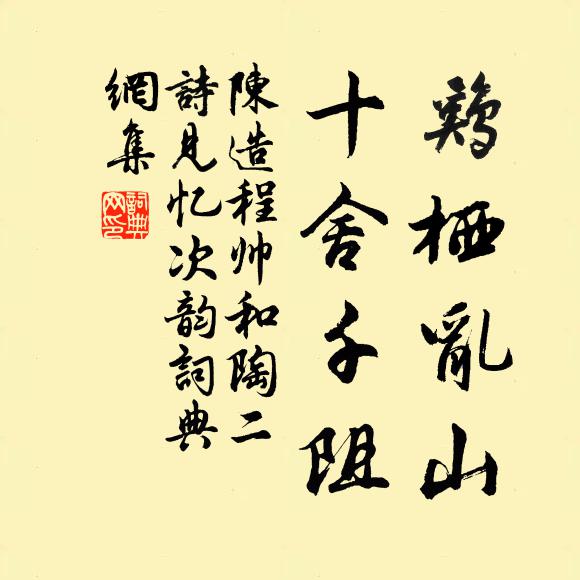 鷄栖亂山
十舍千阻
陳造程帅和陶二
詩見忆次韵詞典
網集
詞典